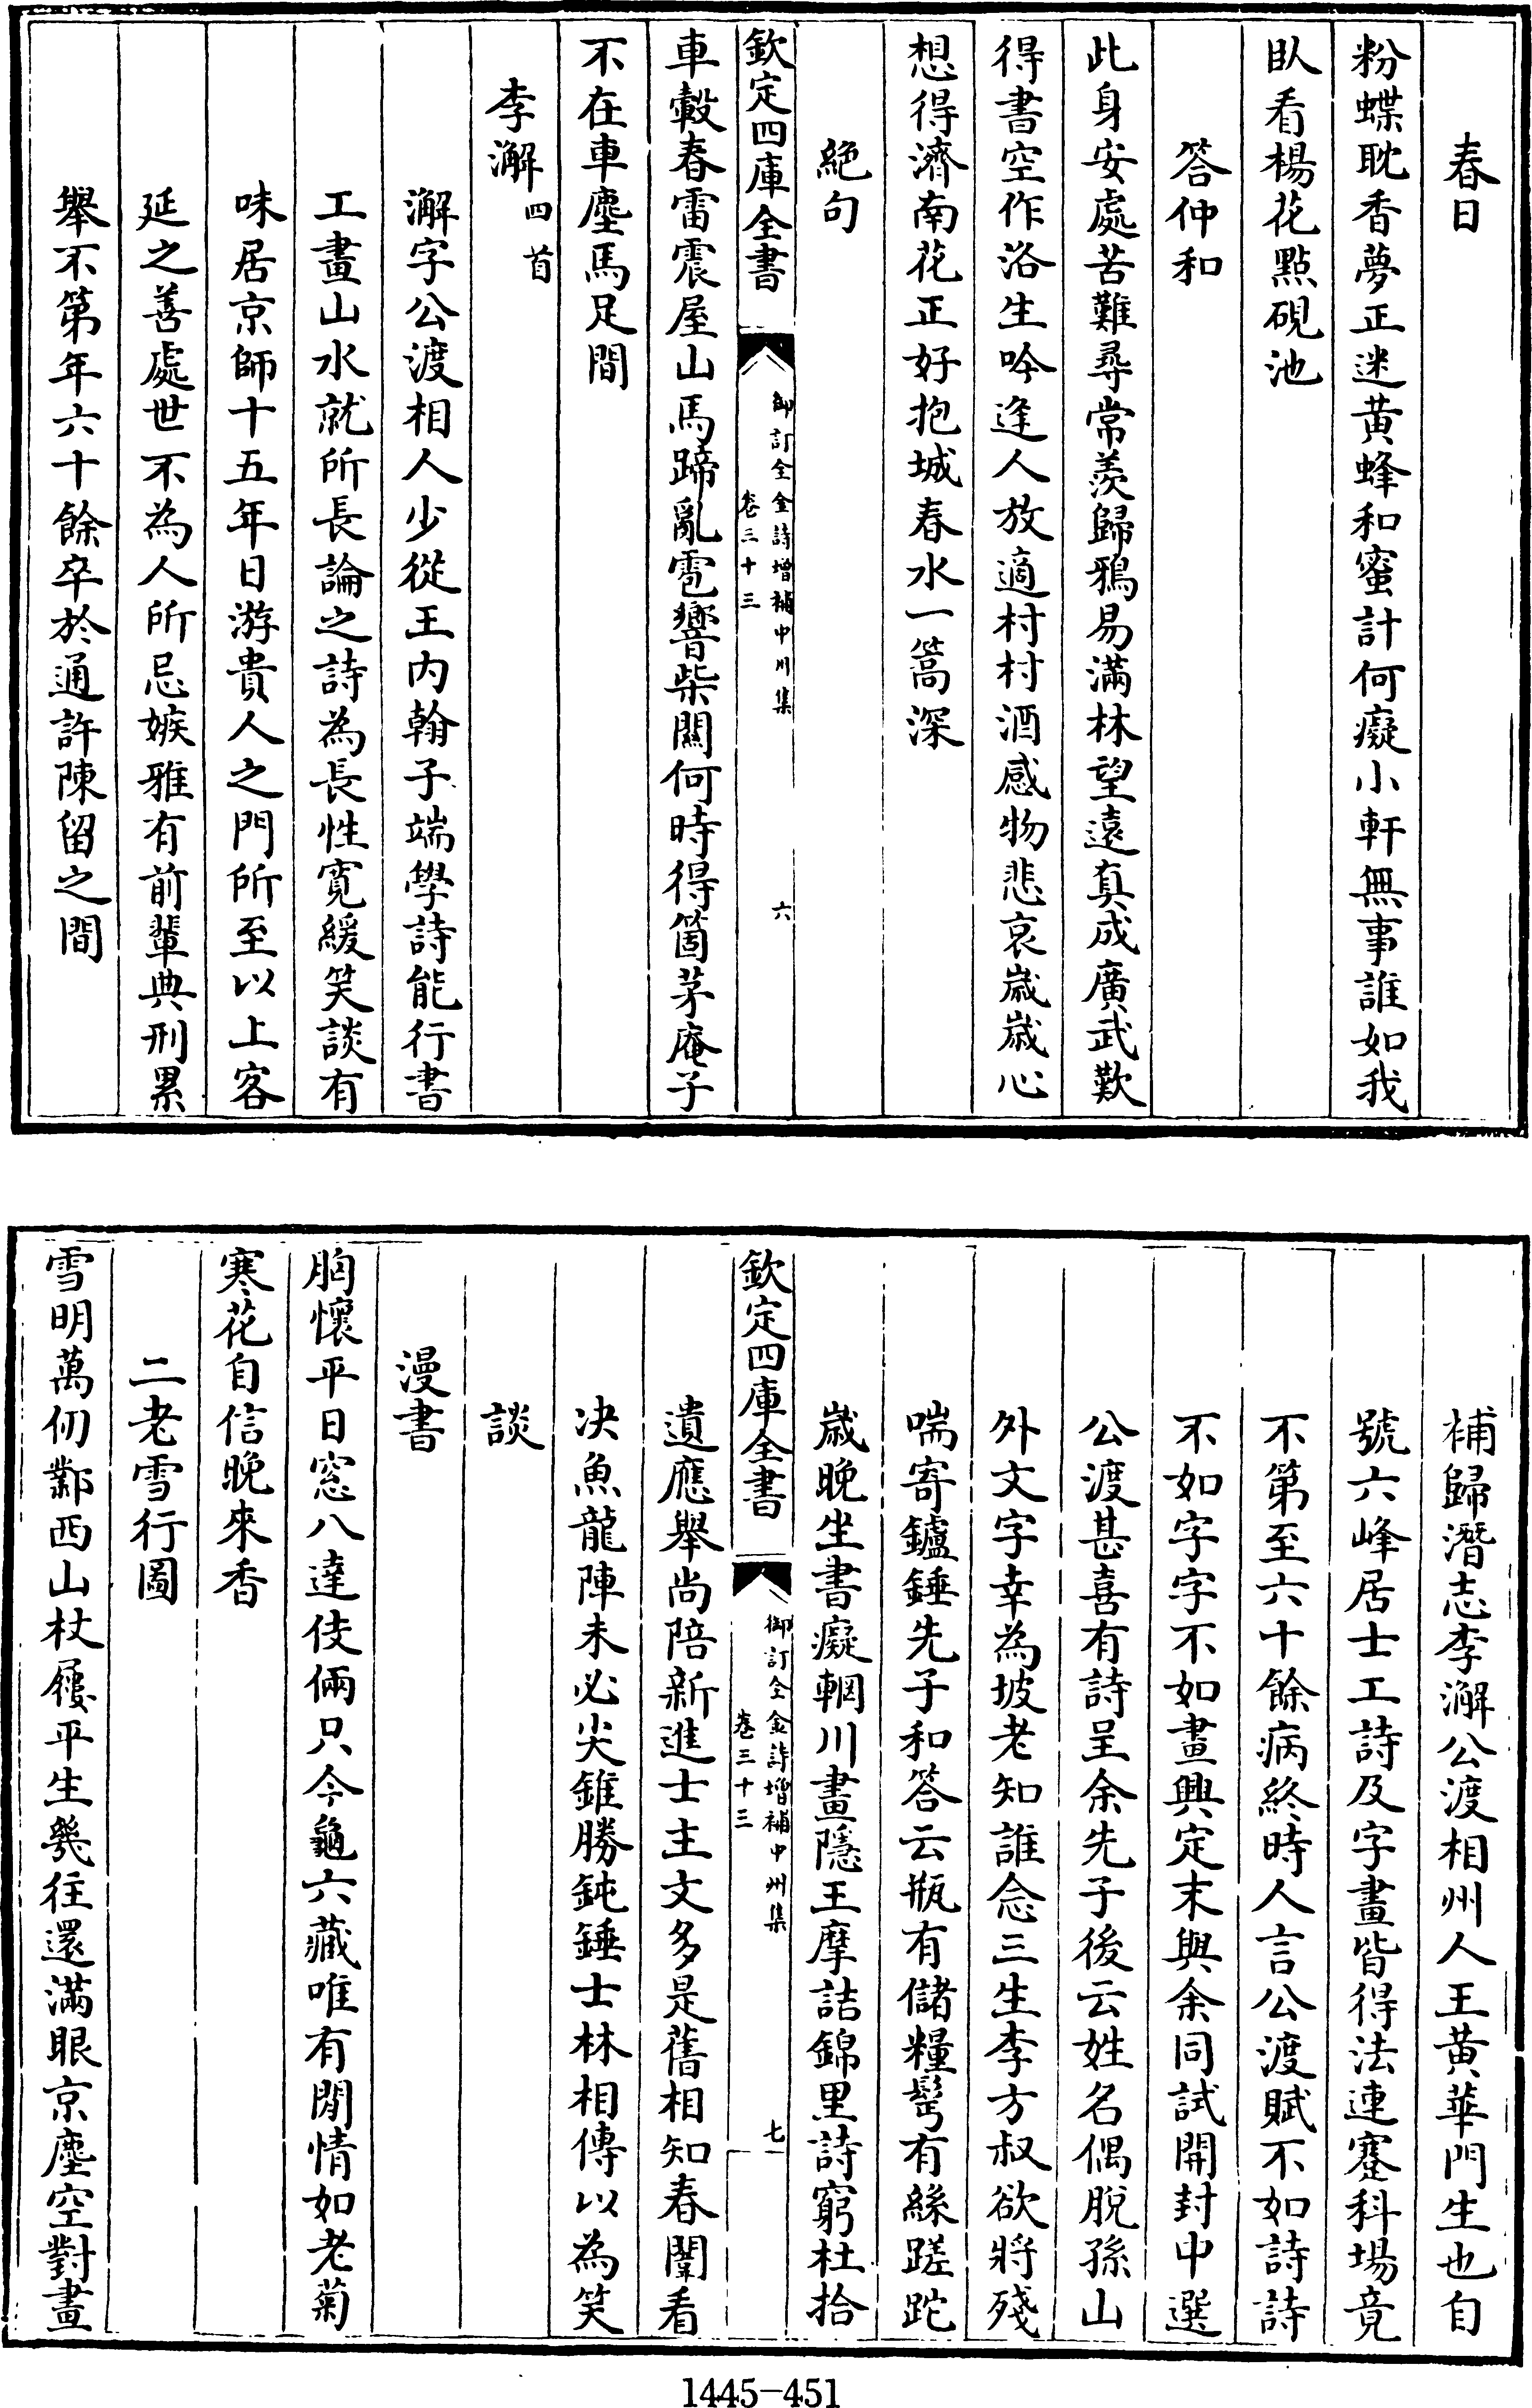 春日
粉蝶耽香夢正迷黄蜂和蜜計何癡小軒無事誰如我
臥看楊花點硯池
答仲和
此身安處苦難尋常羨歸鴉易滿林望遠真成廣武歎
得書空作洛生吟逢人放適村村酒感物悲哀嵗嵗心
想得濟南花正好抱城春水一篙深
絶句
欽定四庫全書
御訂全金詩增補中川集
卷三十三
六
車轂春雷震屋山馬蹄亂雹響柴關何時得箇茅庵子
不在車塵馬足間
李澥四首
澥字公渡相人少從王内翰子端學詩能行書
工畫山水就所長論之詩為長性寛緩笑談有
味居京師十五年日游貴人之門所至以上客
延之善處世不為人所忌嫉雅有前輩典刑累
舉不第年六十餘卒於通許陳留之間
補歸潛志李澥公渡相州人王黄華門生也自
號六峰居士工詩及字畫皆得法連蹇科場竟
不第至六十餘病終時人言公渡賦不如詩詩
不如字字不如畫興定末與余同試開封中選
公渡甚喜有詩呈余先子後云姓名偶脫孫山
外文字幸為坡老知誰念三生李方叔欲將殘
喘寄鑪錘先子和答云瓶有儲糧髩有絲蹉跎
嵗晚坐書癡輞川畫隱王摩詰錦里詩窮杜拾
欽定四庫全書
御訂全金詩增補中州集
卷三十三
七
遺應舉尚陪新進士主文多是舊相知春闈看
决魚龍陣未必尖錐勝鈍錘士林相傳以為笑
談
漫書
胸懷平日窓八達伎倆只今龜六藏唯有閒情如老菊
寒花自信晚來香
二老雪行圖
雪明萬仞鄴西山杖屨平生幾往還滿眼京塵空對畫
1445-451